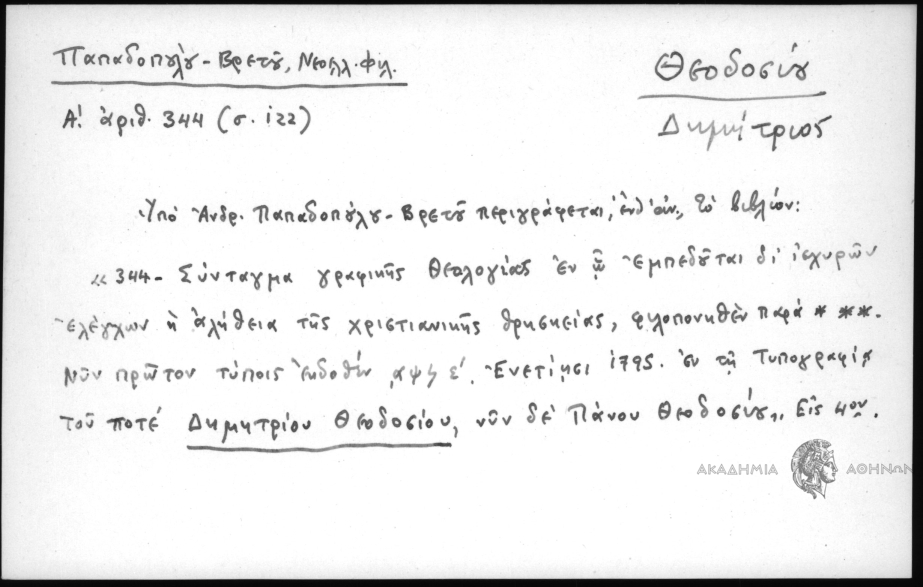 Παπαδοπούλου-Βρετοῦ, Νεοελλ. Φιλ.
Α΄. ἀριθ. 344 (σ. 122)
Θεοδοσίου
Δημήτριος
Ὑπὸ Ἀνδρ. Παπαδοπούλου-Βρετοῦ περιγράφεται, ἐνθ' ἀν., τὸ βιβλίον:
«344- Σύνταγμα γραφικῆς Θεολογίας ἐν ᾧ ἐμπεδοῦται δι' ἰσχυρῶν
ἐλέγχων ἡ ἀλήθεια τῆς χριστιανικῆς θρησκείας, φιλοπονηθὲν παρὰ * **.
Νῦν πρῶτον τύποις ἐκδοθὲν ͵αψϟε΄. Ἐνετίῃσι 1795. ἐν τῇ Τυπογραφίᾳ
τοῦ ποτέ Δημητρίου Θεοδοσίου, νῦν δὲ Πάνου Θεοδοσίου,, Εἰς 4ον.
ΑΚΑΔΗΜΙΑ ΑΘΗΝΩΝ